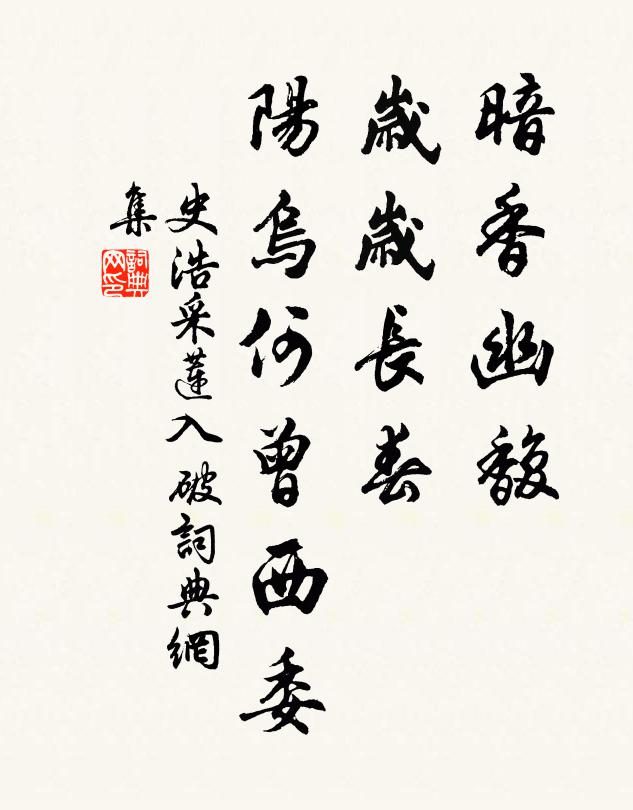 暗香幽馥
歲歲長春
陽烏何曾西委
史浩采蓮入破詞典網
集
詞典网印